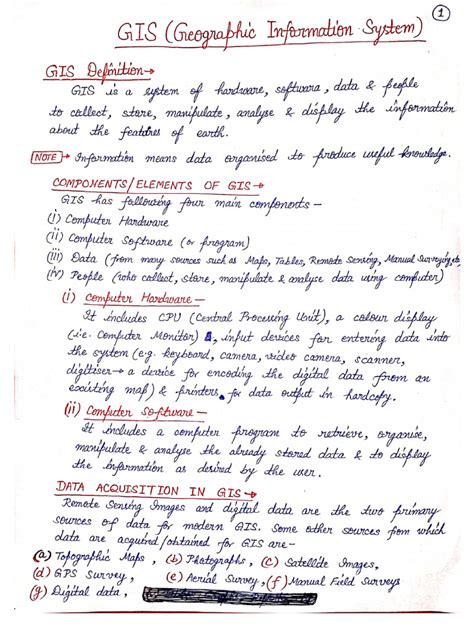 1
GIS (Geographic Information System)
GIS Definition →
GIS is a system of hardware, software, data & people
to collect, store, manipulate, analyse & display the information
about the features of earth.
NOTE → Information means data organised to produce useful knowledge.
COMPONENTS/ELEMENTS OF GIS →
GIS has following four main components –
(i) Computer Hardware
(ii) Computer Software (or program)
(iii) Data (from many sources such as Maps, Tables, Remote Sensing, Manual Surveying, etc)
(iv) People (who collect, store, manipulate & analyse data using computer)
(i) Computer Hardware –
It includes CPU (Central Processing Unit), a colour display
(i.e. Computer Monitor), input devices for entering data into
the system (e.g. keyboard, camera, video camera, scanner,
digitiser → a device for encoding the digital data from an
existing map) & printers for data output in hardcopy.
(ii) Computer Software –
It includes a computer program to retrieve, organise,
manipulate & analyse the already stored data & to display
the information as desired by the user.
DATA ACQUISITION IN GIS →
Remote Sensing Images and digital data are the two primary
sources of data for modern GIS. Some other sources from which
data are acquired/obtained for GIS are –
(a) Topographic Maps, (b) Photographs, (c) Satellite Images,
(d) GPS Survey, (e) Aerial Survey, (f) Manual Field Surveys
(g) Digital data,